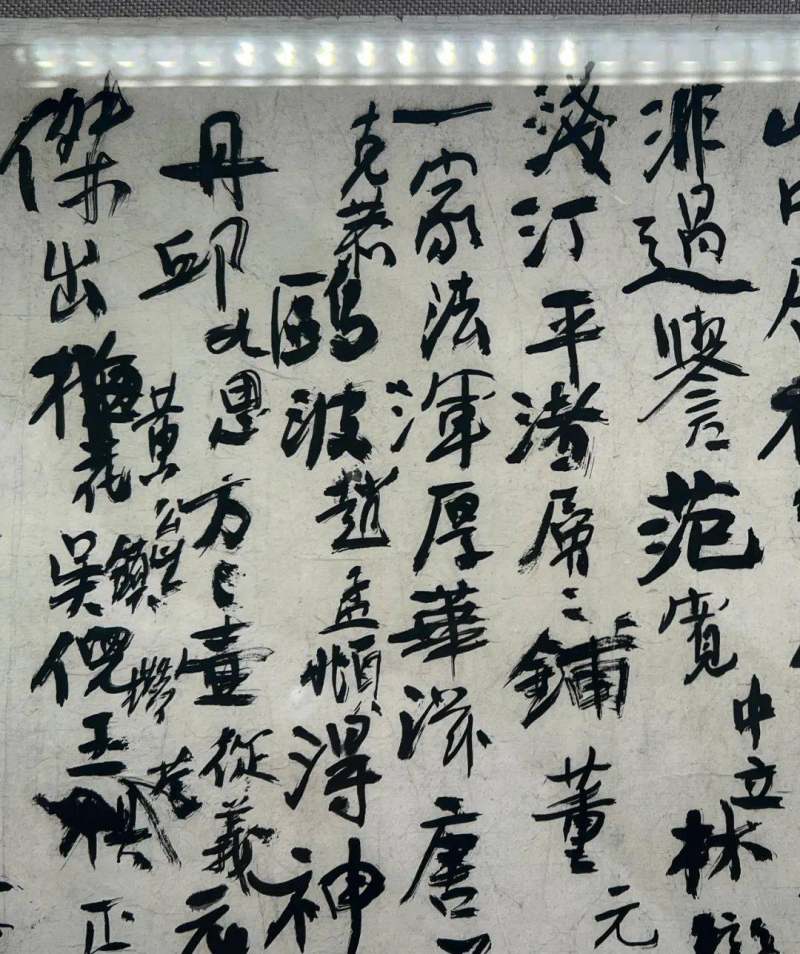 山中
非過譽范寬中立林
淺汀平渚層〻鋪董元
一家法渾厚華滋唐
克恭鷗波趙孟頫得神
丹邱九思方〻壺從義元
黃公望
傑出梅花吳鎮倪瓚王蒙正